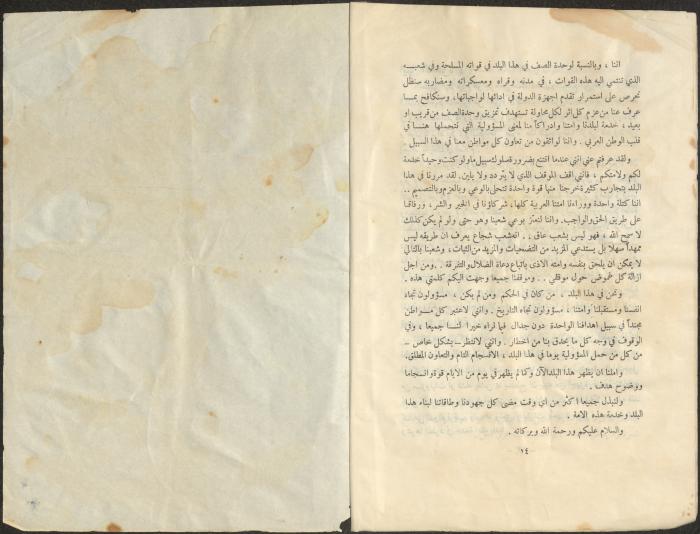 اننا ، وبالنسبة لوحدة الصف في هذا البلد في قواته المسلحة وفي شعبـــه
الذي تنتمي اليه هذه القوات ، في مدنه وقراه ومعسكراته ومضاربه سنظل
نحرص على استمرار تقدم اجهزة الدولة في ادائها لواجباتها، وسنكافح بمـا
عرف عنا من عزم كل اثر لكل محاولة تستهدف تمزيق وحدة الصف من قريب او
بعيد ، خدمة لبلدنا وامتنا وادراكاً منا لمعنى المسؤولية التي نتحملها هنـا في
قلب الوطن العربي . واننا لواثقون من تعاون كل مواطن معنا في هذا السبيل .
ولقد عرفتم عني انني عندما اقتنع بضرورة سلوك سبيل ما ولو كنت وحيداً خدمة
لكم ولامتكم ، فانني اقف الموقف الذي لا يتردد ولا يلين. لقد مررنا في هذا
البلد بتجارب كثيرة خرجنا منها قوة واحدة تتحلى بالوعي وبالعزم وبالتصميم ..
اننا كتلة واحدة ووراءنا امتنا العربية كلها، شركاؤنا في الخير والشر، ورفاقنا
على طريق الحق والواجب. واننا لنعتز بوعي شعبنا وهو حتى ولو لم يكن كذلك
لا سمح الله ، فهو ليس بشعب عاق . . انه شعب شجاع يعرف ان طريقه ليس
ممهداً سهلا بل يستدعي المزيد من التضحيات والمزيد من الثبات، وشعبنا بالتالي
لا يمكن ان يلحق بنفسه وامته الاذى باتباع دعاة الضلال والتفرقة . . ومن اجل
ازالة كل غموض حول موقفي . . وموقفنا جميعا وجهت اليكم كلمتي هذه .
ونحن في هذا البلد ، من كان في الحكم ومن لم يكن ، مسؤولون تجاه
انفسنا ومستقبلنا وامتنا ، مسؤولون تجاه التاريخ . وانني لاعتبر كل مـواطن
مجنداً في سبيل اهدافنا الواحدة دون جدال فيما نراه خيرا لنـا جميعا ، وفي
الوقوف في وجه كل ما يحدق بنا من اخطار . وانني لانتظر ــ بشكل خاص ــ
من كل من حمل المسؤولية يوما في هذا البلد ، الانسجام التام والتعاون المطلق.
واملنا ان يظهر هذا البلد الآن وكما لم يظهر في يوم من الايام قوة وانسجاما
ووضوح هدف .
ولنبذل جميعا اكثر من اي وقت مضى كل جهودنا وطاقاتنا لبناء هذا
البلد وخدمة هذه الامة .
والسلام عليكم ورحمة الله وبركاته .
١٤